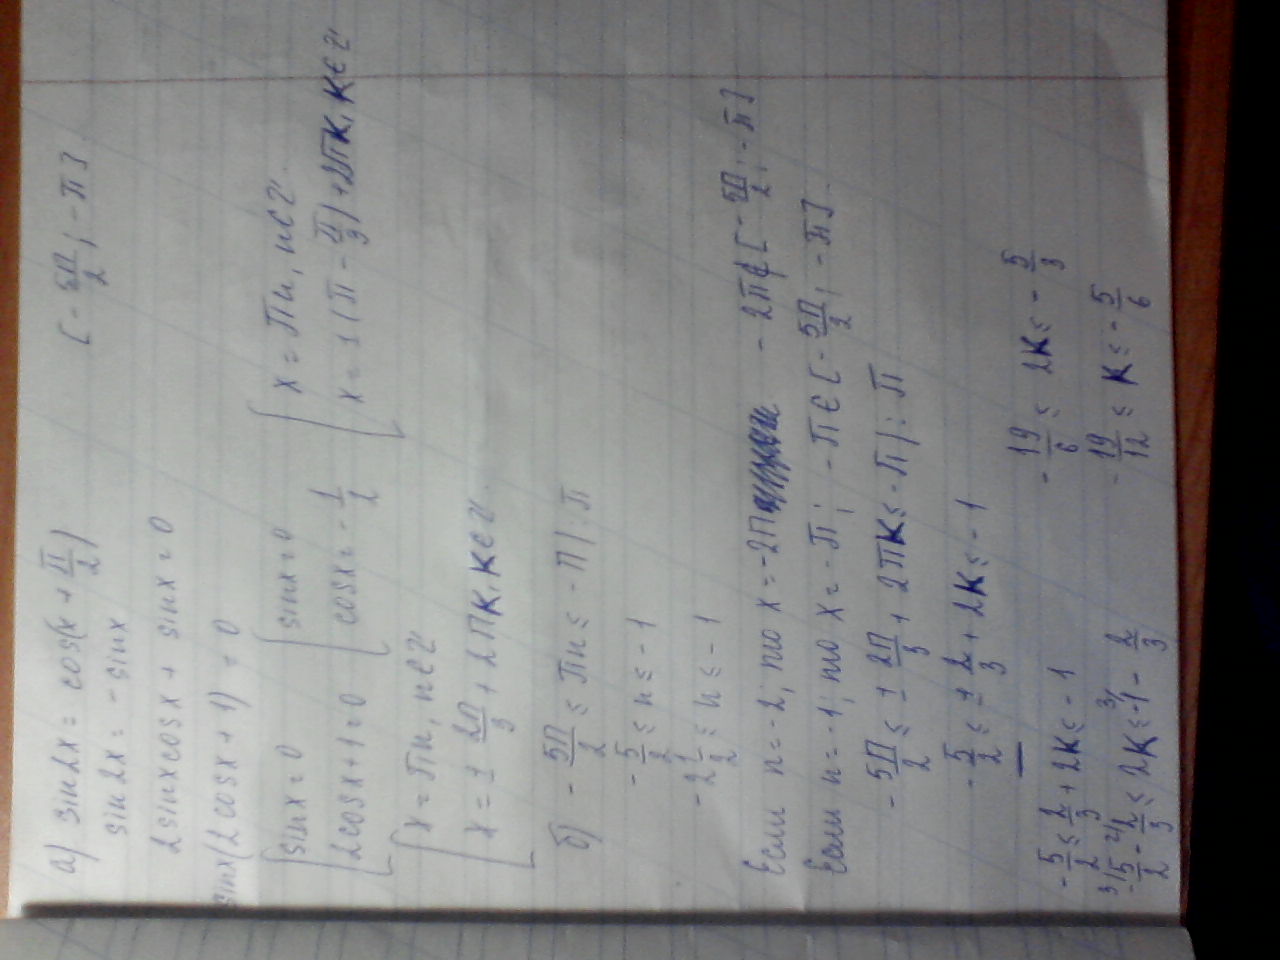 а) sin2x = cos(x + π/2) [-5π/2; -π].
sin2x = -sinx
2sinxcosx + sinx = 0
sinx(2cosx + 1) = 0
[ sinx = 0 [ sinx = 0 [ x = πn, n∈Z.
2cosx + 1 = 0 cosx = -1/2 x = ±(π - π/3) + 2πk, k∈Z
[ x = πn, n∈Z
x = ± 2π/3 + 2πk, k∈Z.
б) -5π/2 ≤ πn ≤ -π | : π
-5/2 ≤ n ≤ -1
-2 1/2 ≤ n ≤ -1
Если n = -2, то x = -2π -2π∈[-5π/2; -π]
Если n = -1, то x = -π; -π∈[-5π/2; -π].
-5π/2 ≤ ± 2π/3 + 2πk ≤ -π | : π
-5/2 ≤ ± 2/3 + 2k ≤ -1
-5/2 ≤ 2/3 + 2k ≤ -1 -19/6 ≤ 2k ≤ -5/3
-5/2 - 2/3 ≤ 2k ≤ -1 - 2/3 -19/12 ≤ k ≤ -5/6